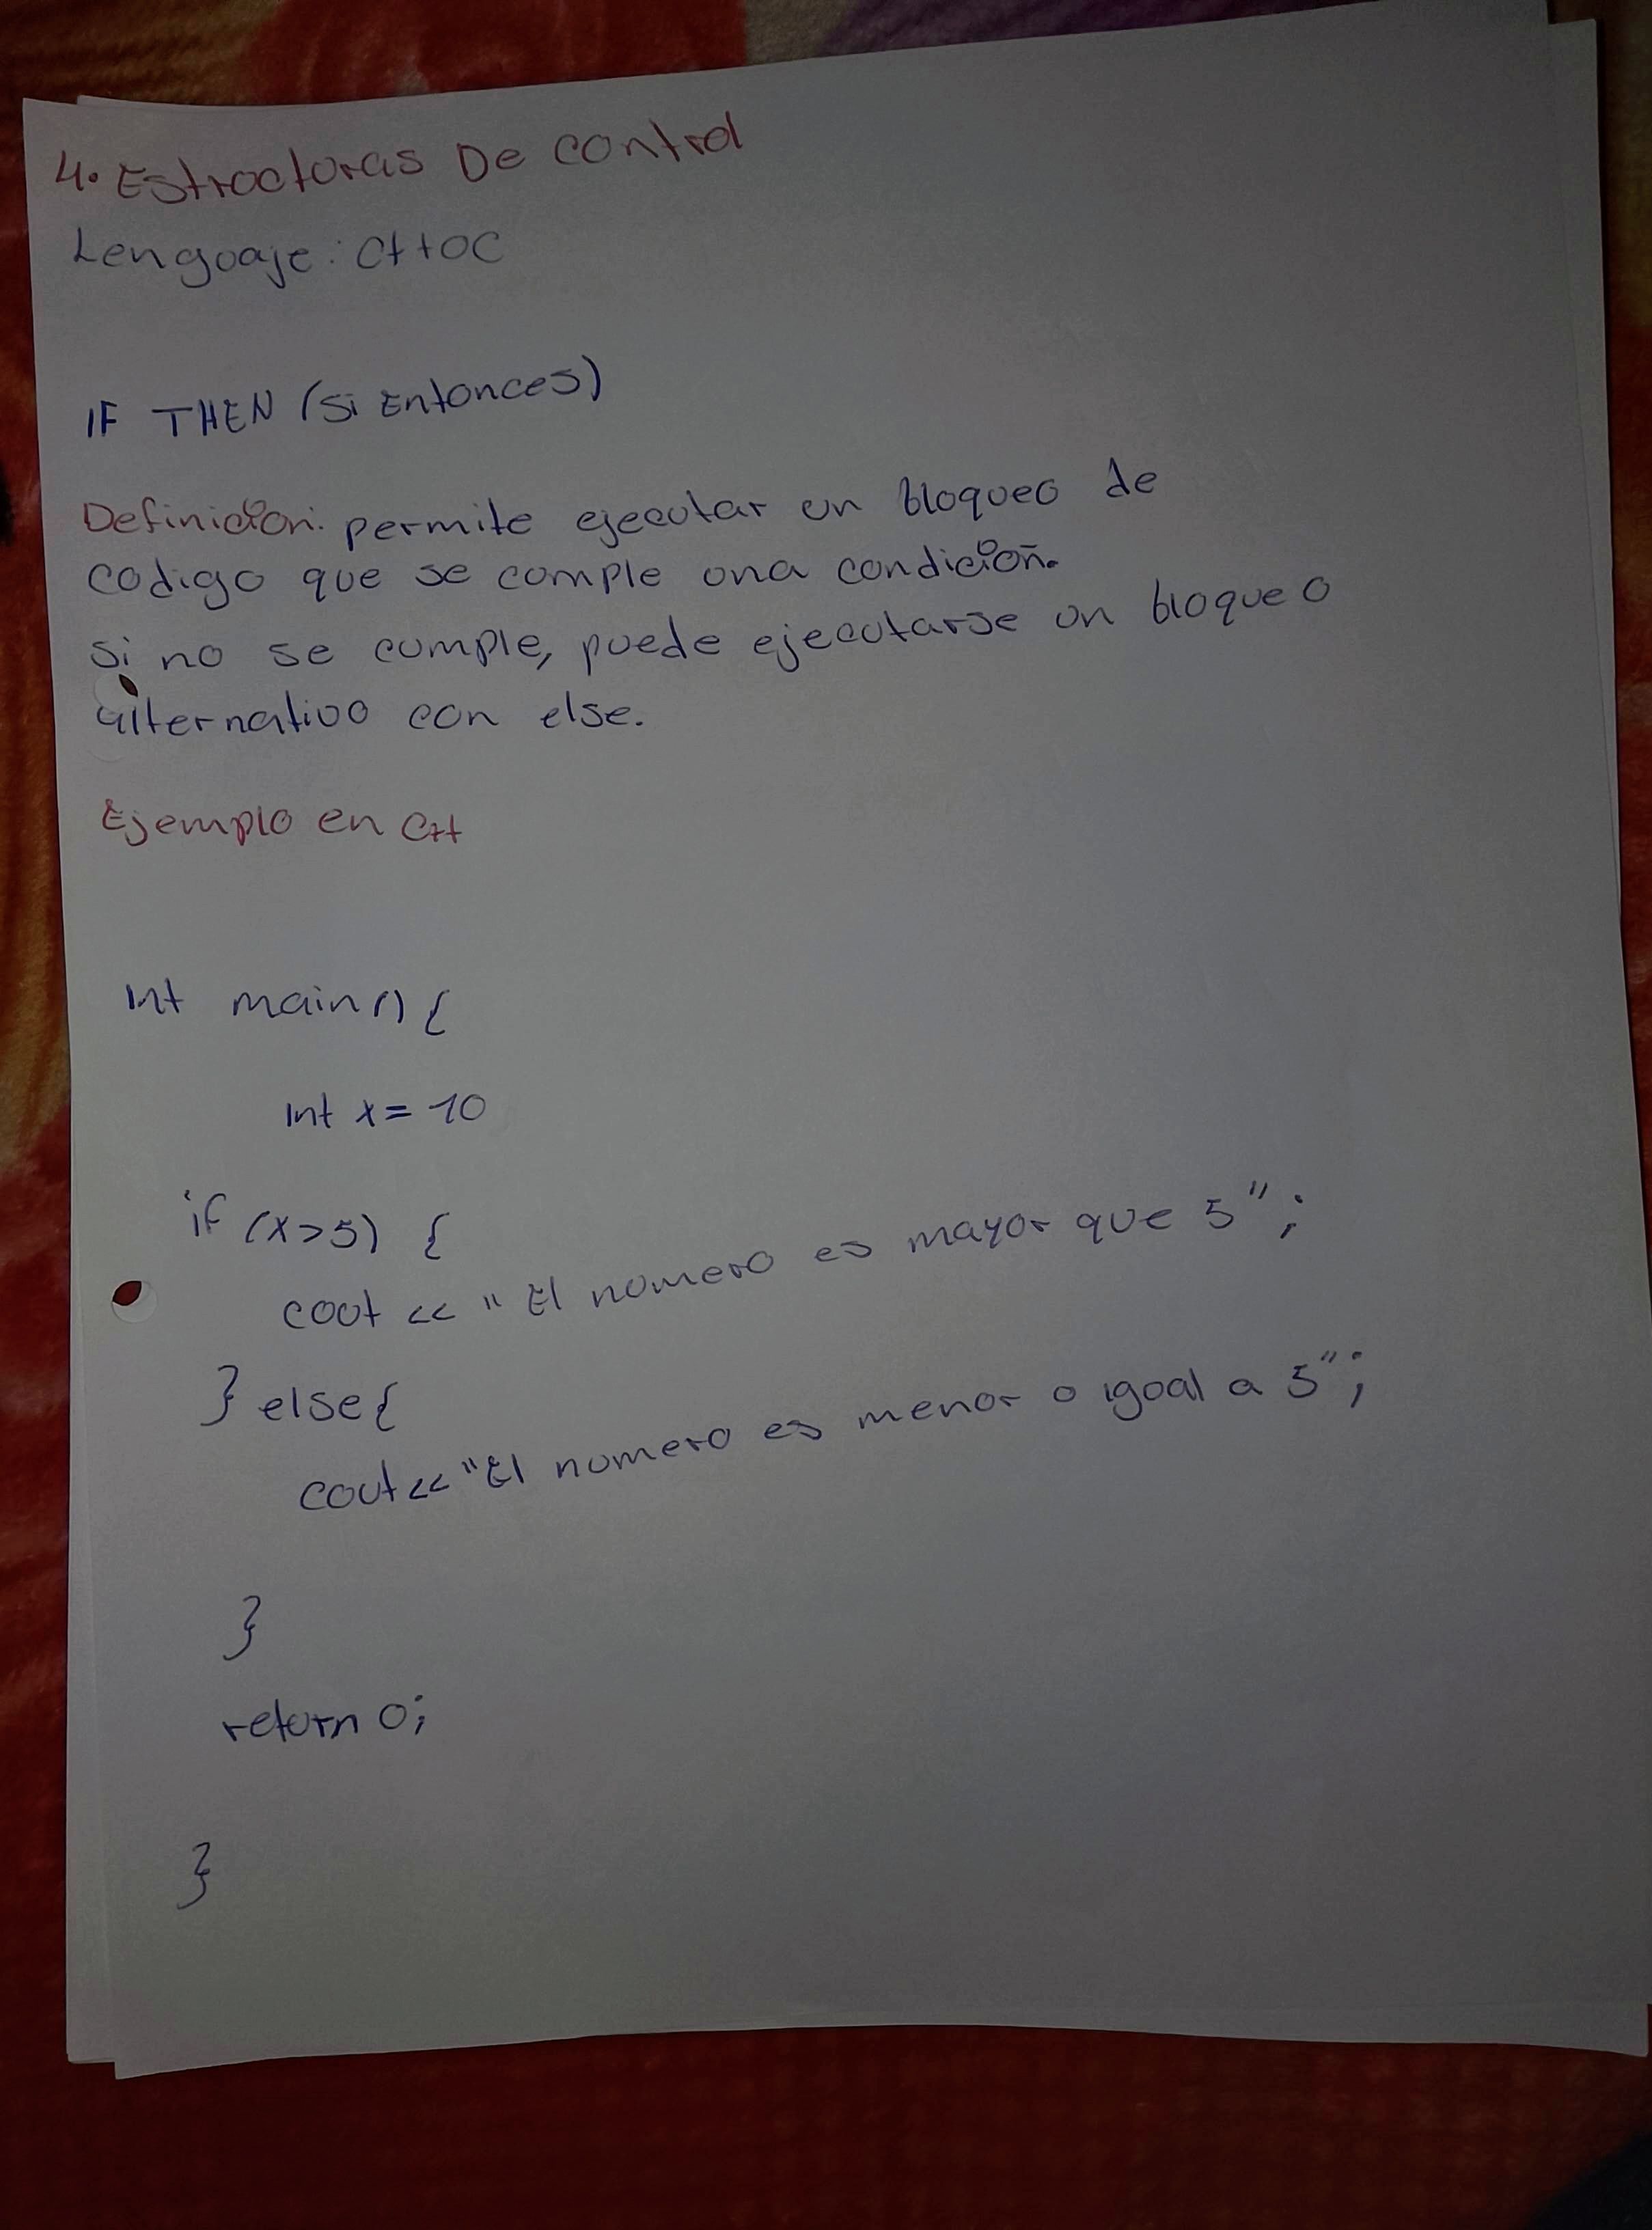 4. Estructuras De control
Lenguaje: C++ O C
IF THEN (Si Entonces)
Definición: permite ejecutar un bloqueo de
codigo que se comple una condición.
Si no se cumple, puede ejecutarse un bloqueo
alternativo con else.
Ejemplo en C++
Int main() {
Int x = 10
if (x>5) {
cout << "El numero es mayor que 5";
} else{
cout<<"El numero es menor o igual a 5";
}
return 0;
}